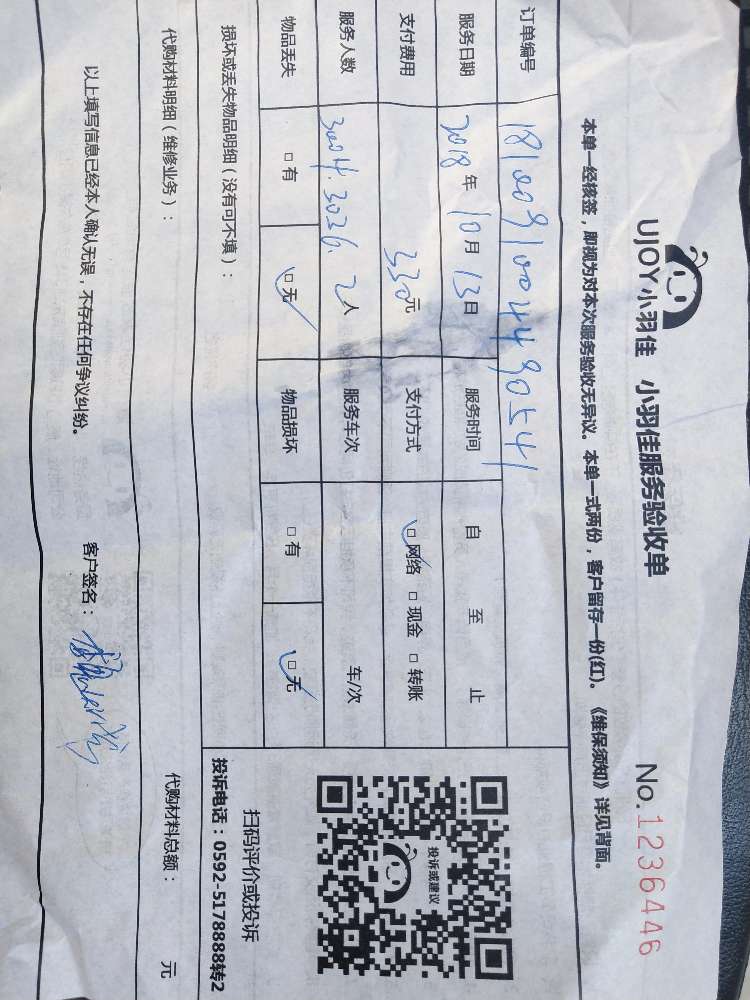 UJOY小羽佳 小羽佳服务验收单 No.1236446
本单一经核签，即视为对本次服务验收无异议。本单一式两份，客户留存一份(红)。《维保须知》详见背面。
订单编号 181009100449054
服务日期 2018年10月13日 服务时间 自 至 止
支付费用 330元 支付方式 □网络 □现金 □转账
服务人数 3004.3036. 2人 服务车次 车/次
物品丢失 □有 □无 物品损坏 □有 □无
投诉或建议
扫码评价或投诉
投诉电话：0592-5178888转2
损坏或丢失物品明细（没有可不填）：
代购材料明细（维修业务）： 代购材料总额： 元
以上填写信息已经本人确认无误，不存在任何争议纠纷。 客户签名：